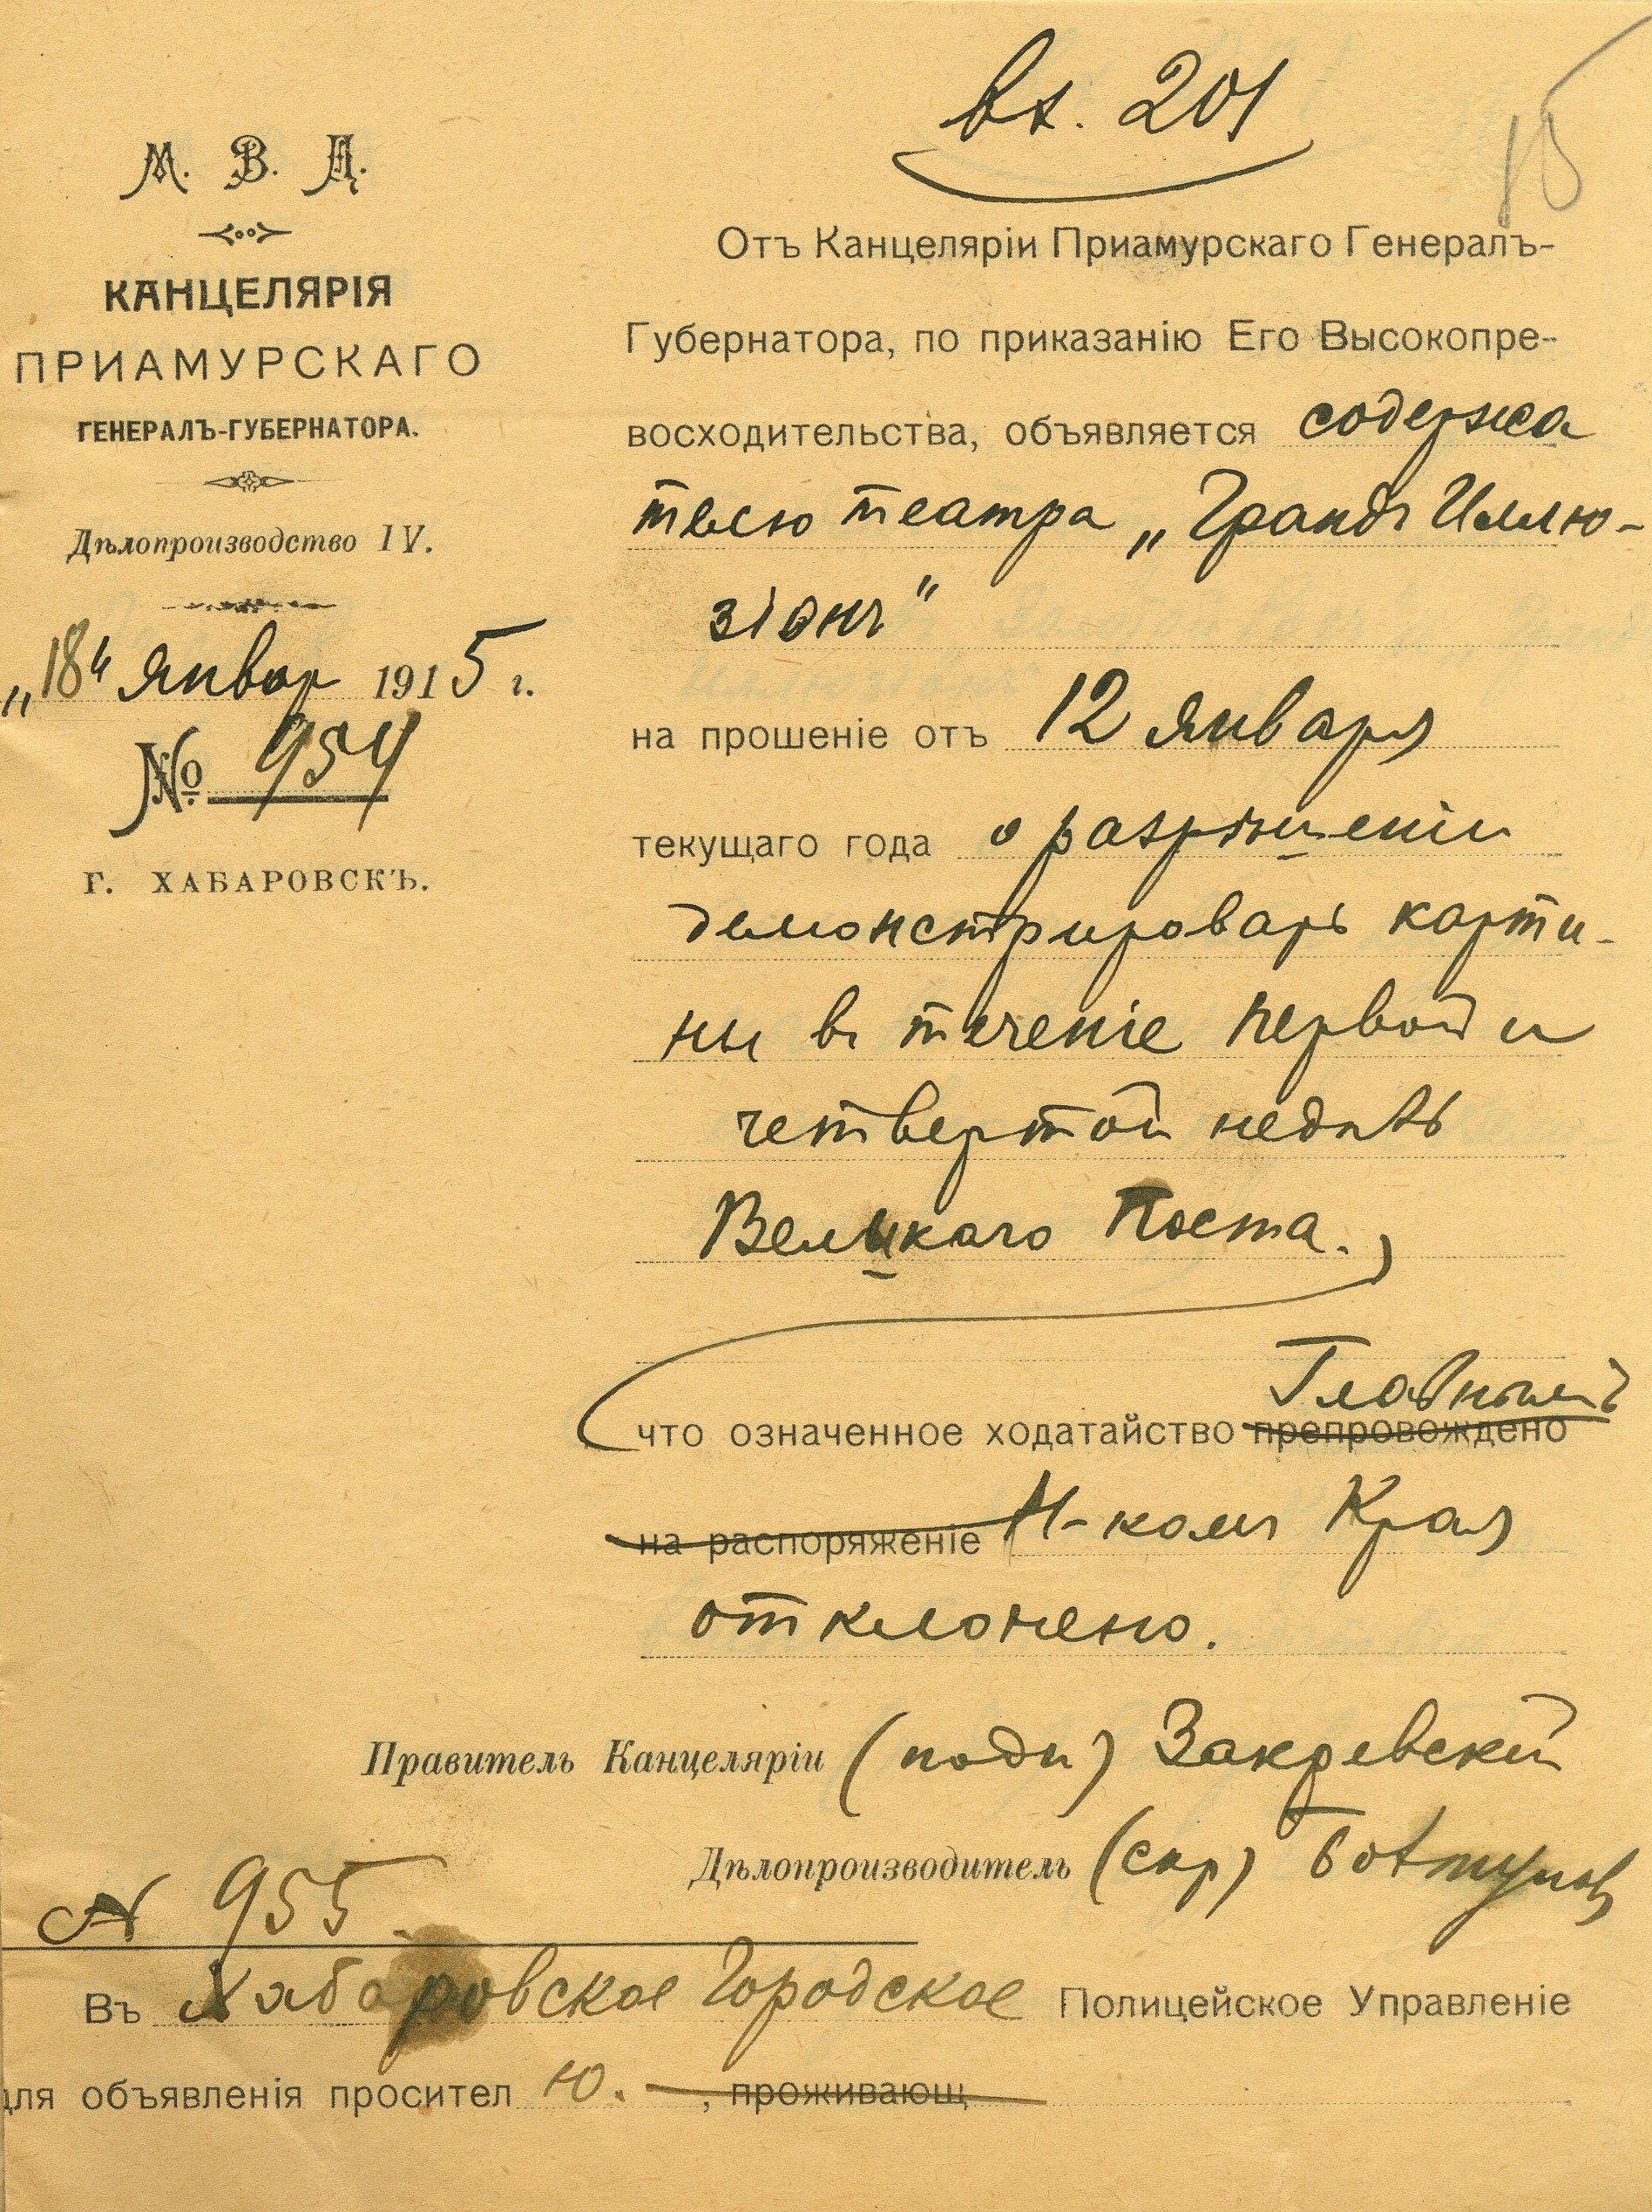 вх. 201
15
М. В. Д.
КАНЦЕЛЯРІЯ
ПРИАМУРСКАГО
ГЕНЕРАЛЪ-ГУБЕРНАТОРА.
Дѣлопроизводство IV.
„18" январ 1915 г.
№ 954
Г. ХАБАРОВСКЪ.
Отъ Канцеляріи Приамурскаго Генералъ-
Губернатора, по приказанію Его Высокопре-
восходительства, объявляется содержа
телю театра „Грандъ Иллю-
зіонъ"
на прошеніе отъ 12 января
текущаго года о разрѣшеніи
демонстрировать карти-
ны въ теченіе первой и
четвертой недѣль
Великаго Поста.
что означенное ходатайство препровождено Главнымъ
на распоряженіе Н-комъ Края
отклонено.
Правитель Канцеляріи (подп) Закревскій
Дѣлопроизводитель (скр)
№ 955
Въ Хабаровское Городское Полицейское Управленіе
для объявленія просител ю. , проживающ